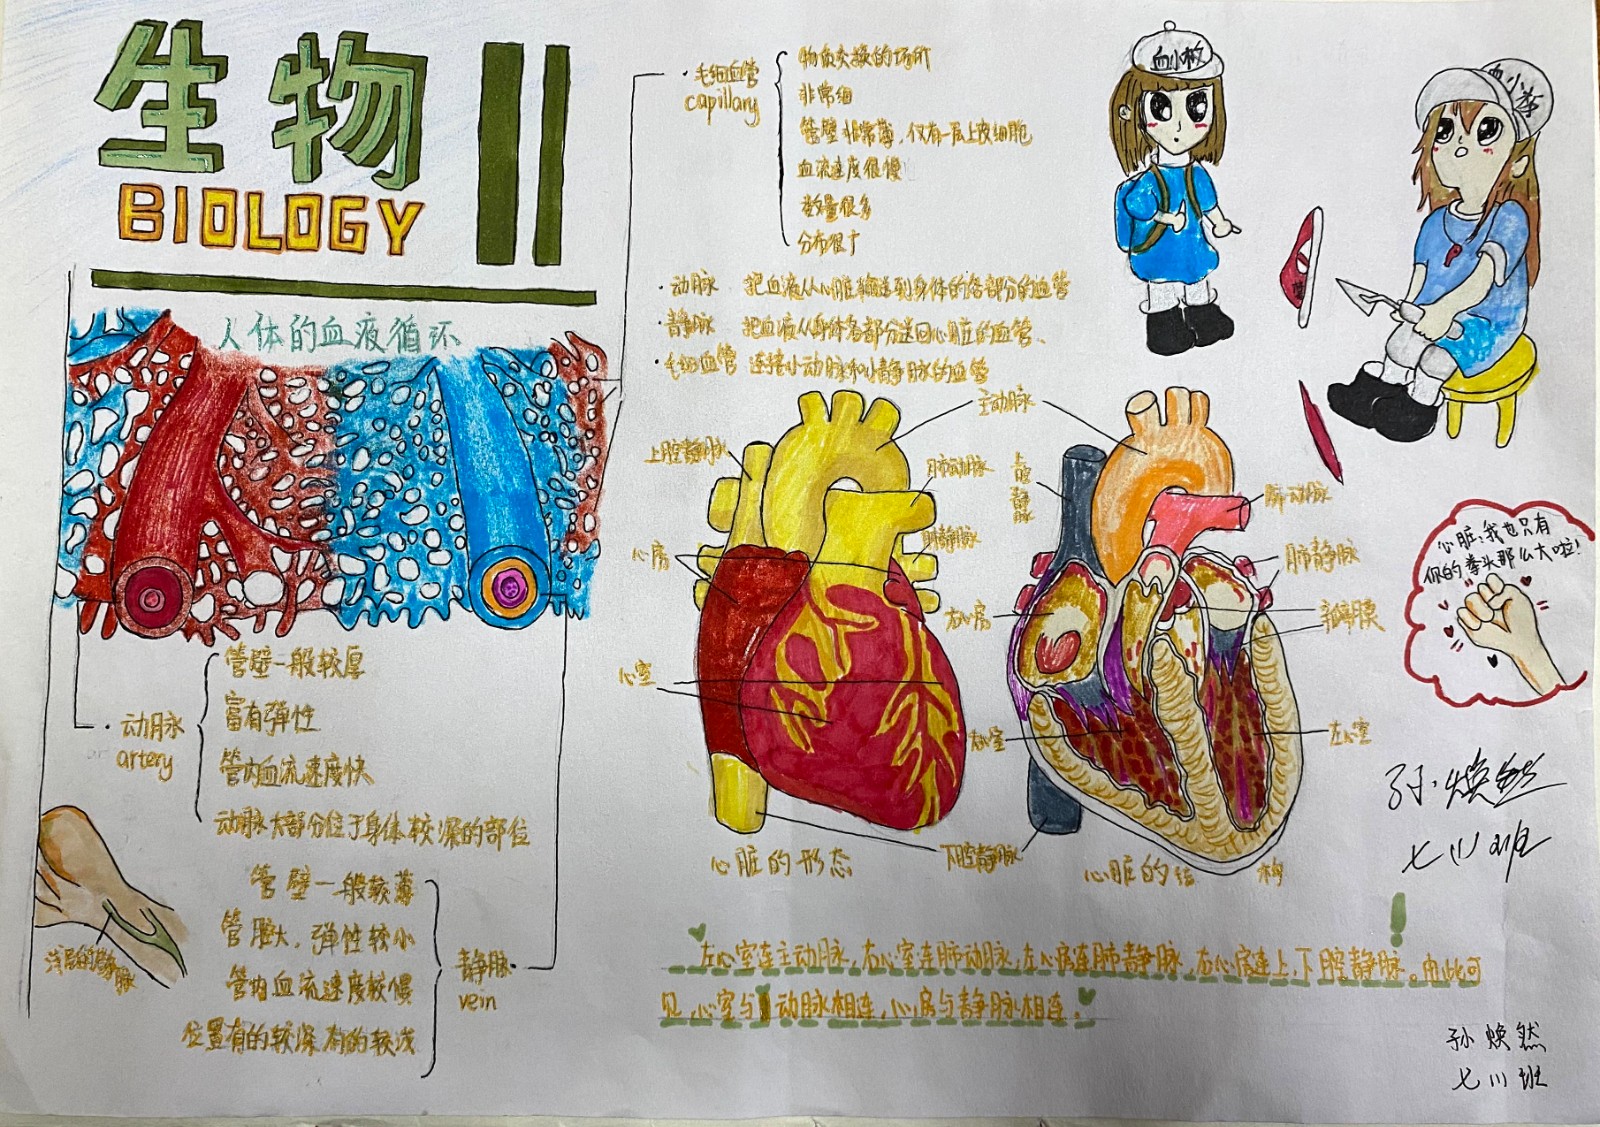 生物
BIOLOGY
人体的血液循环
毛细血管
capillary
物质交换的场所
非常细
管壁非常薄，仅有一层上皮细胞
血流速度很慢
数量很多
分布很广
·动脉 把血液从心脏输送到身体的各部分的血管
·静脉 把血液从身体各部分送回心脏的血管、
·毛细血管 连接小动脉和小静脉的血管
·动脉
artery
管壁一般较厚
富有弹性
管内血流速度快
动脉大部分位于身体较深的部位
管壁一般较薄
管腔大，弹性较小
管内血流速度较慢
位置有的较深有的较浅
静脉
vein
主动脉
上腔静脉
肺动脉
肺静脉
心房
心室
下腔静脉
心脏的形态
上腔静脉
肺动脉
肺静脉
右心房
瓣膜
右心室
左心室
心脏的结构
左心室连主动脉，右心室连肺动脉，左心房连肺静脉，右心房连上，下腔静脉。由此可
见，心室与动脉相连，心房与静脉相连。
血小板
心脏：我也只有
你的拳头那么大啦！
孙焕然
七川班
孙焕然
七川班